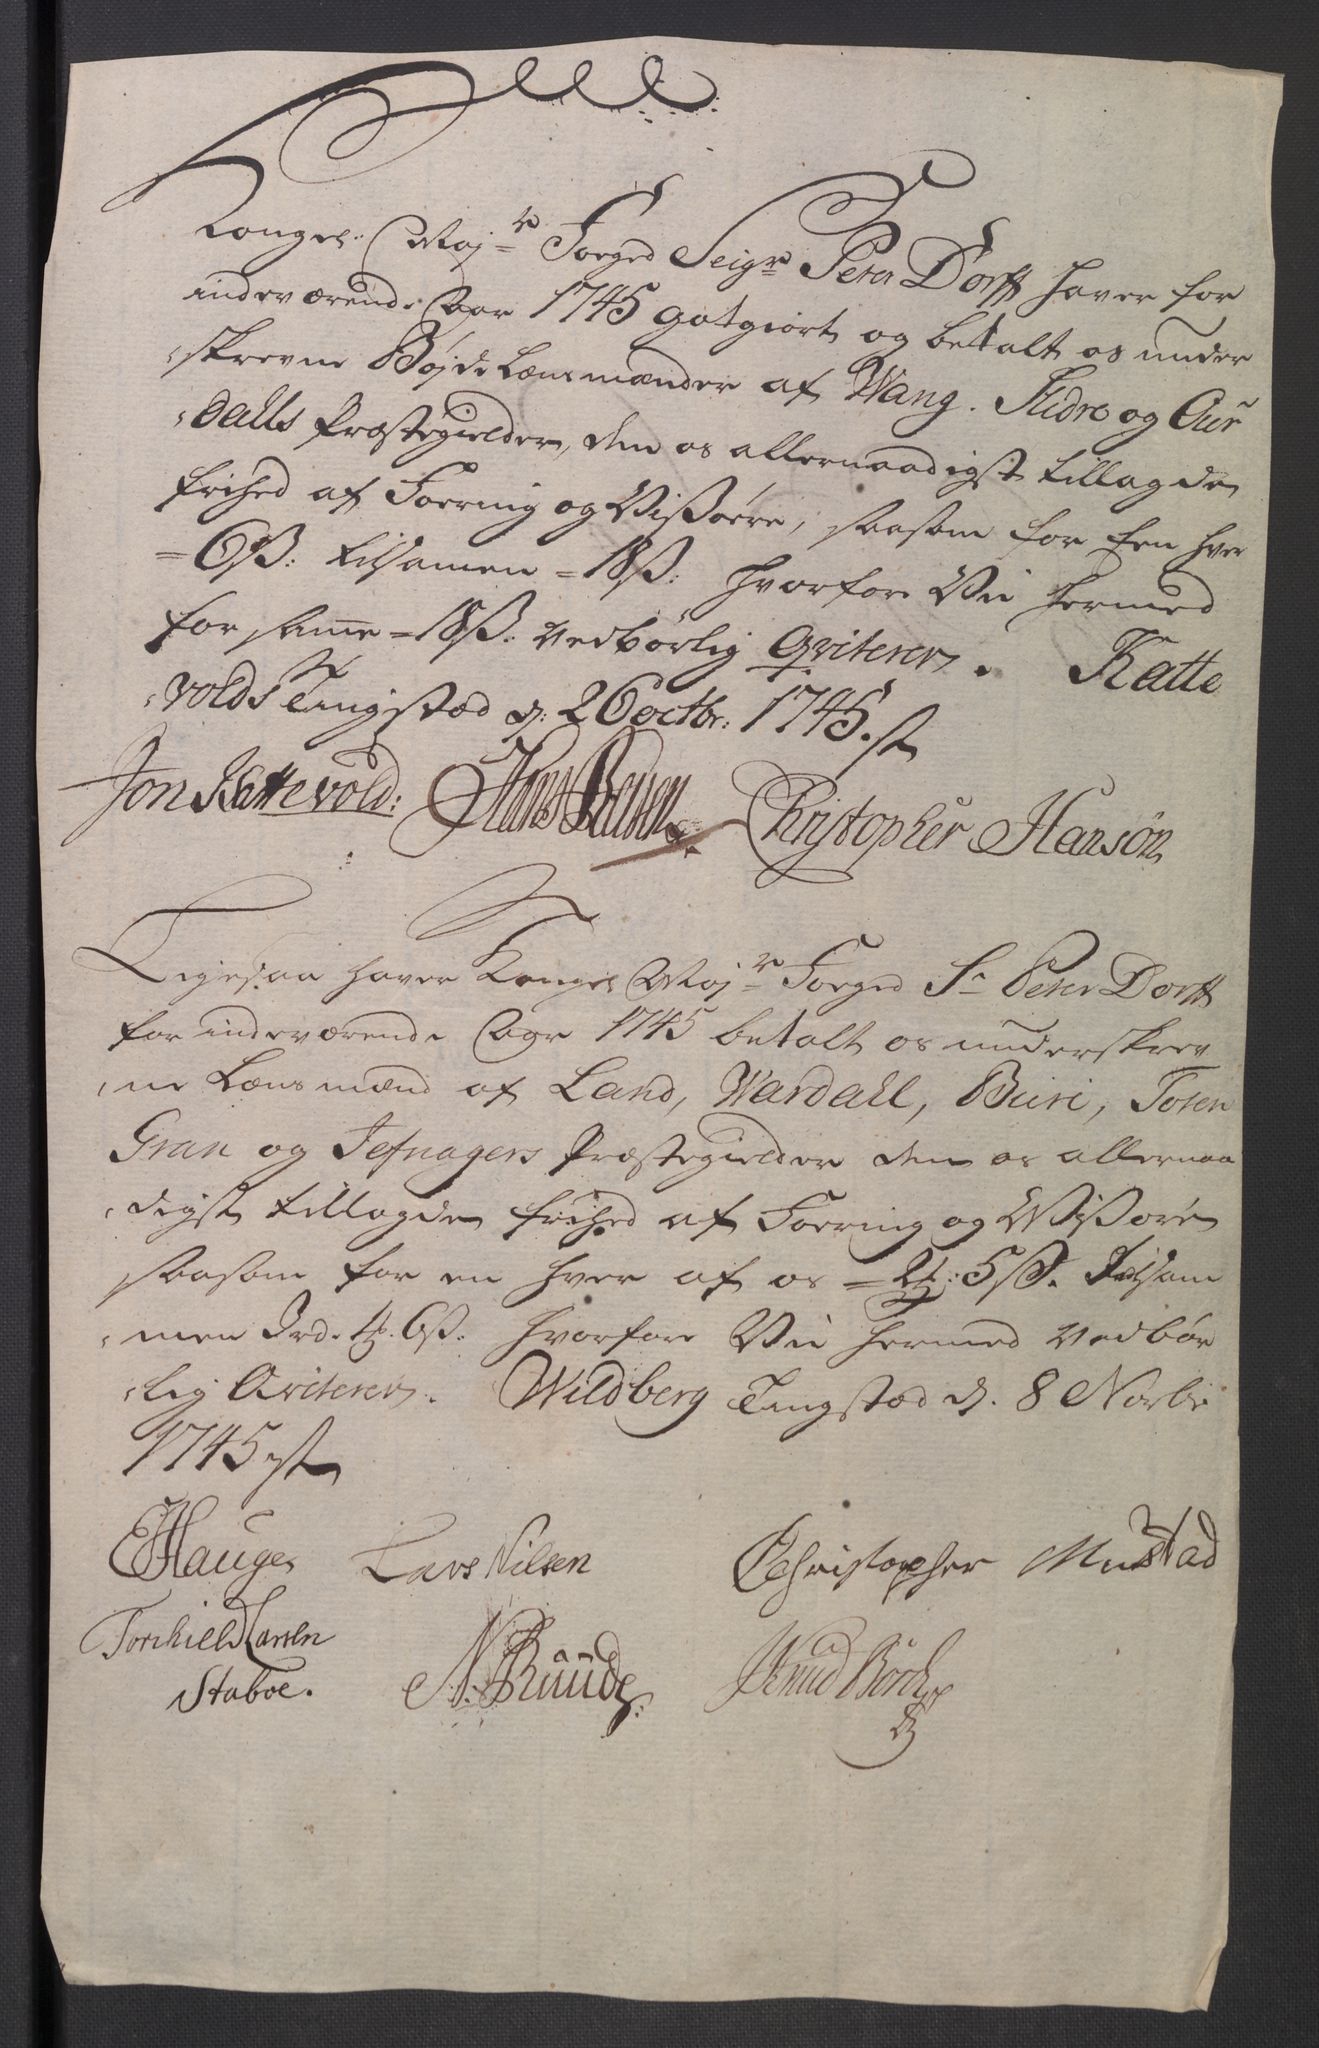 Konges. Maj:te Foeged Seigr Peter Dorff haver for
indeværende Aar 1745 gotgiort og betalt os under
skrevne Bøjde Lænsmænder af Wang. Slidre og Aur
dalls Præstegielder, den os allernaadigst tillagde
frihed af Foering og Vißøere, saasom for Een hver
= 6 ß: tilsamen = 18 ß: hvorfore Vii hermed
for samme = 18 ß: vedbørlig Qviterer. Katte
volds Tingstæd d: 26 octbr: 1745.
Jon Kattevold: Hans Christopher Hansøn
Ligesaa haver Konges Maj:te Foeged Sr Peter Dorff
for indeværende Aar 1745 betalt os underskrev
ne Lænsmænd af Land, Wardall, Biiri, Toten
Gran og Jefnagers Præstegielder den os allernaa
digst tillagde frihed af Foering og Vißøre
saasom for en hver af os = 5 ß. Tilsam
men 6 ß. hvorfore Vii hermed vedbør
lig Qviterer. Wildberg Tingstæd d. 8 Novbr
1745
EHauge Lars Nilsen Christopher Mustad
Torchield Larsen
Staboe. N Ruude Knud Børch